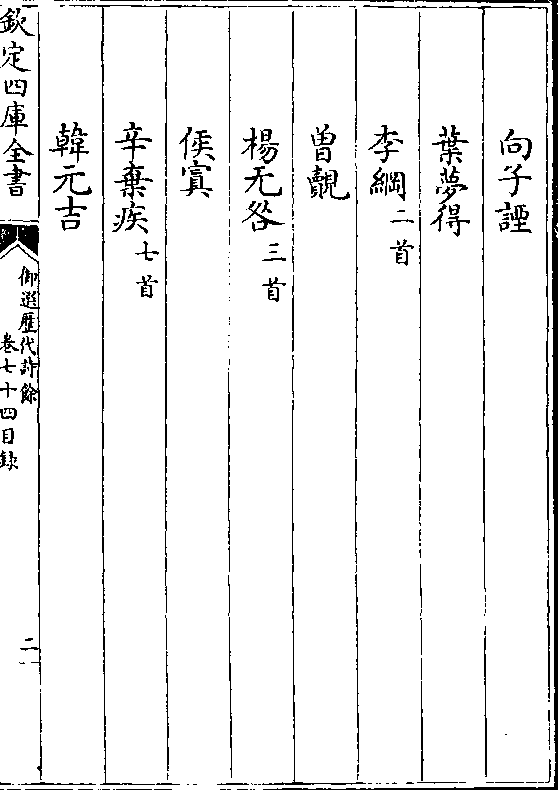 向子諲
葉夢得
李綱二首
曾覿
楊无咎三首
侯寘
辛棄疾七首
韓元吉
欽定四庫全書
御選歷代詩餘
卷七十四目録
二